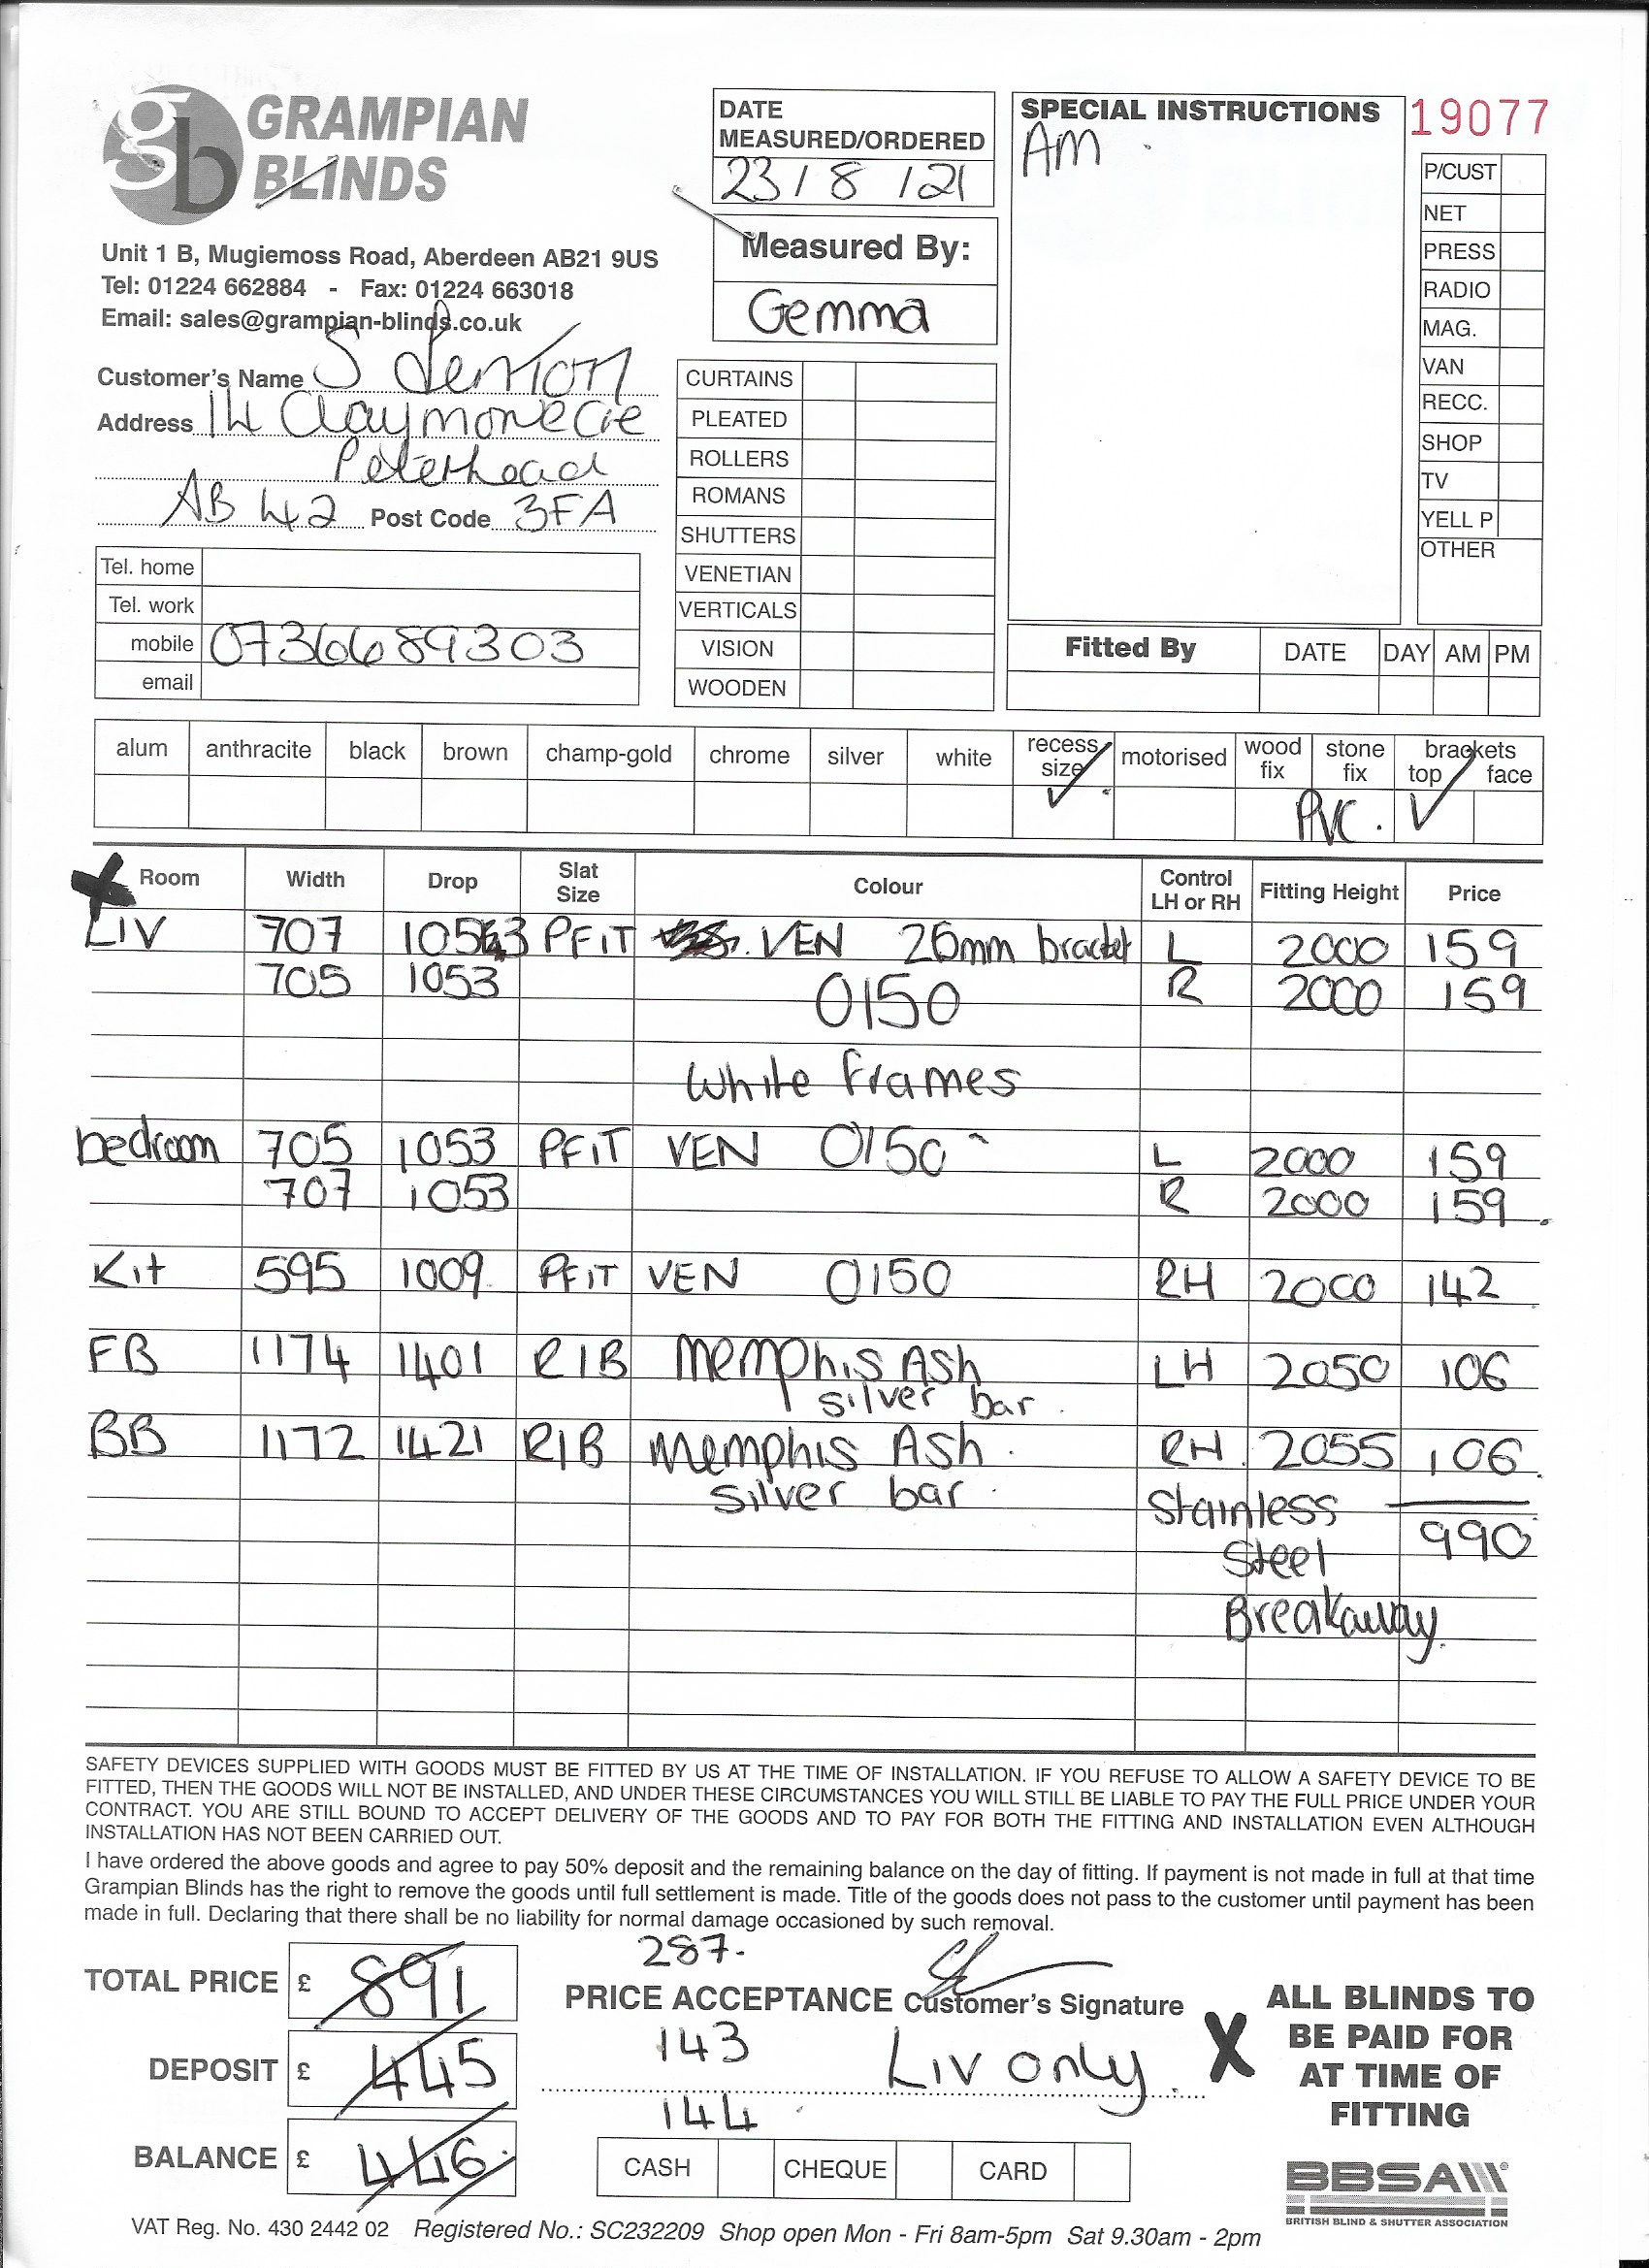 GRAMPIAN
BLINDS
Unit 1 B, Mugiemoss Road, Aberdeen AB21 9US
Tel: 01224 662884 - Fax: 01224 663018
Email: sales@grampian-blinds.co.uk
Customer's Name S
Address 14 Claymore Cre
Peterhead
AB42 Post Code 3FA
Tel. home
Tel. work
mobile 07366689303
email
DATE
MEASURED/ORDERED
23 / 8 / 21
Measured By:
Gemma
CURTAINS
PLEATED
ROLLERS
ROMANS
SHUTTERS
VENETIAN
VERTICALS
VISION
WOODEN
SPECIAL INSTRUCTIONS
AM
19077
P/CUST
NET
PRESS
RADIO
MAG.
VAN
RECC.
SHOP
TV
YELL P
OTHER
Fitted By DATE DAY AM PM
alum anthracite black brown champ-gold chrome silver white recess size motorised wood fix stone fix brackets top face
PVC.
Room Width Drop Slat Size Colour Control LH or RH Fitting Height Price
LIV 707 1053 PFIT VEN 26mm bracket L 2000 159
705 1053 0150 R 2000 159
White Frames
bedroom 705 1053 PFIT VEN 0150 L 2000 159
707 1053 R 2000 159
Kit 595 1009 PFIT VEN 0150 RH 2000 142
FB 1174 1401 RIB Memphis Ash LH 2050 106
silver bar
BB 1172 1421 RIB Memphis Ash. RH 2055 106
silver bar Stainless
Steel 990
Breakaway.
SAFETY DEVICES SUPPLIED WITH GOODS MUST BE FITTED BY US AT THE TIME OF INSTALLATION. IF YOU REFUSE TO ALLOW A SAFETY DEVICE TO BE
FITTED, THEN THE GOODS WILL NOT BE INSTALLED, AND UNDER THESE CIRCUMSTANCES YOU WILL STILL BE LIABLE TO PAY THE FULL PRICE UNDER YOUR
CONTRACT. YOU ARE STILL BOUND TO ACCEPT DELIVERY OF THE GOODS AND TO PAY FOR BOTH THE FITTING AND INSTALLATION EVEN ALTHOUGH
INSTALLATION HAS NOT BEEN CARRIED OUT.
I have ordered the above goods and agree to pay 50% deposit and the remaining balance on the day of fitting. If payment is not made in full at that time
Grampian Blinds has the right to remove the goods until full settlement is made. Title of the goods does not pass to the customer until payment has been
made in full. Declaring that there shall be no liability for normal damage occasioned by such removal.
TOTAL PRICE £ 891
DEPOSIT £ 445
BALANCE £ 446
287.
PRICE ACCEPTANCE Customer's Signature
143 Liv only.
144
CASH CHEQUE CARD
X
ALL BLINDS TO
BE PAID FOR
AT TIME OF
FITTING
BBSA
BRITISH BLIND & SHUTTER ASSOCIATION
VAT Reg. No. 430 2442 02 Registered No.: SC232209 Shop open Mon - Fri 8am-5pm Sat 9.30am - 2pm